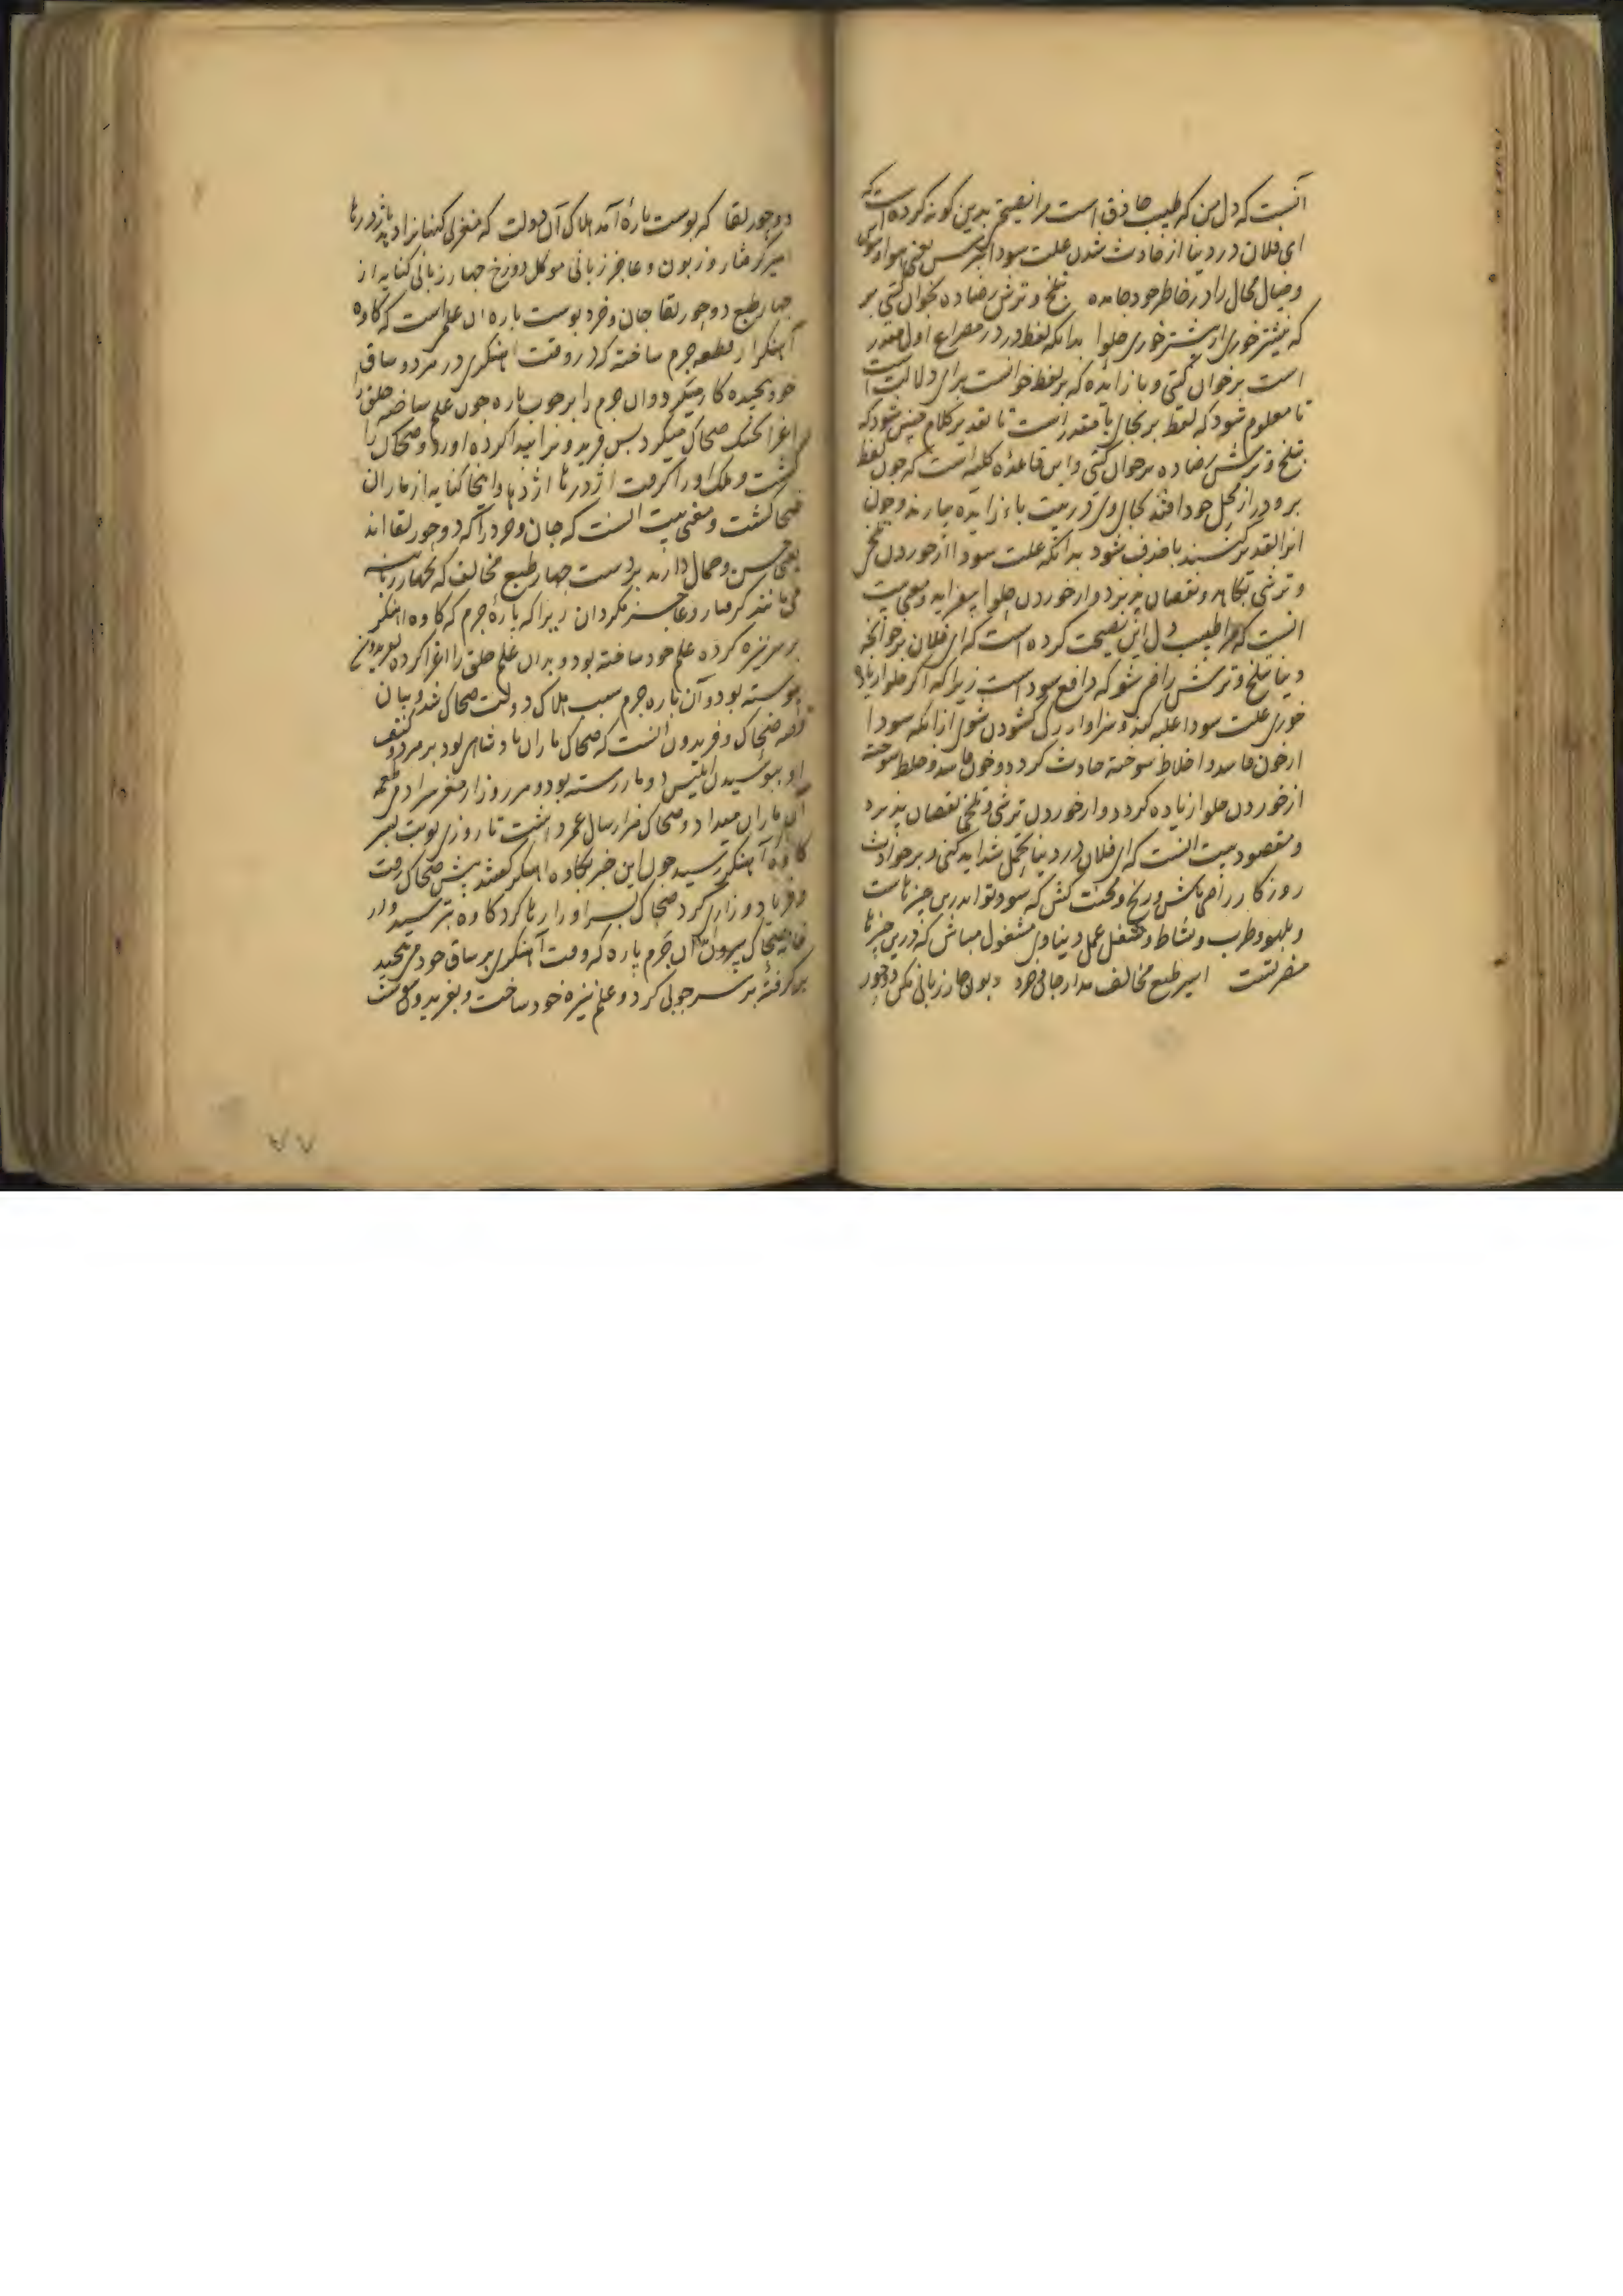 آنست که دل من که طبیب حاذق است مرا نصیحتی بدین کونه کرده است که
ای فلان در دنیا از حادث شدن علت سودا بترس یعنی هوا و هوس
و خیال محال را در خاطر خود جا مده بتلخ و ترش رضا ده بخوان کیتی بر
که نیشتر خوری ار بیشتر خوری حلوا بدانکه لفظ در در مصراع اول مقدر
است بر خوان کیتی و با زایده که بر لفظ خوانست برای دلالت است
تا معلوم شود که لفظ بر بجای با مقدر است تا تقدیر کلام چنین شود که
بتلخ و ترش رضا ده بر خوان کیتی و این قاعدهٔ کلیه است که چون لفظ
بر و در از محل خود افتد بجای وی در بیت باء زایده بیارند و چون
انرا تقدیر کنند با حذف شود بدانکه علت سودا از خوردن تلخی
و ترشی بکاهد و نقصان پذیرد و از خوردن حلوا بیفزاید و معنی بیت
انست که مرا طبیب دل این نصیحت کرده است که ای فلان بر خوانچهٔ
دنیا بتلخ و ترش راضی شو که دافع سودا است زیرا که اگر حلوا زیاده
خوری علت سودا غلبه کند و سزاوار رک کشودن شوی از انکه سودا
از خون فاسد و اخلاط سوخته حادث کردد و خون فاسد و خلط سوخته
از خوردن حلوا زیاده کردد و از خوردن ترشی و تلخی نقصان پذیرد
و مقصود بیت انست که ای فلان در دنیا تحمل شداید کنی و بر حوادث
روزکار راضی باش و رنج و محنت کش که سود تو اندرین چیزهاست
و بلهو و طرب و نشاط و شغل عمل دنیاوی مشغول مباش که درین چیزها
مضرتست اسیر طبع مخالف مدار جان و خرد زبون چار زبانی مکن دو حور
دو حور لقا که پوست پارهٔ آمد هلاک آن دولت که مغز بی کنهان را دهد باژدرها
اسیر کرفتار و زبون و عاجز زبانی موکل دوزخ چهار زبانی کنایه از
چهار طبع دو حور لقا جان و خرد پوست پاره ان علم است که کاوه
آهنکر از قطعه چرم ساخته که در وقت اهنکری در هر دو ساق
خود پیچیده کار میکرد و ان چرم را بر چوب پاره چون علم ساخته خلق را
اغرا بجنک ضحاک میکرد پس فریدونرا پیدا کرده اورد و ضحاک را
کشت و ملک او را کرفت اژدرها اژدها و اینجا کنایه از ماران
ضحاکست و معنی بیت انست که جان و خرد را که دو حور لقا اند
یعنی حسن و جمال دارند بر دست چهار طبع مخالف که بچهار زبانیه
می مانند کرفتار و عاجز مکردان زیرا که پارهٔ چرم که کاوه اهنکر
بر سر نیزه کرده علم خود ساخته بود و بدان علم خلق را اغرا کرده بفریدون
پیوسته بود و آن پاره چرم سبب هلاک دولت ضحاک شد و بیان
قصه ضحاک و فریدون انست که ضحاک ماران پادشاهی بود بر هر دو کتف
او ببوسیدن ابلیس دو مار رسته بود و هر روز از مغز سر ادمی طعمه
آن ماران میداد و ضحاک هزار سال عمر داشت تا روزی نوبت پسر
کاوه آهنکر رسید چون این خبر بکاوه اهنکر کفتند پیش ضحاک رفت
و فریاد و زاری کرد ضحاک پسر او را رها کرد کاوه بترسید و از
خانه ضحاک بیرون ان چرم پاره که وقت آهنکری بر ساق خود می پیچید
بر کرفته بر سر چوبی کرد و علم نیزه خود ساخت و بفریدون پیوست
۷۷